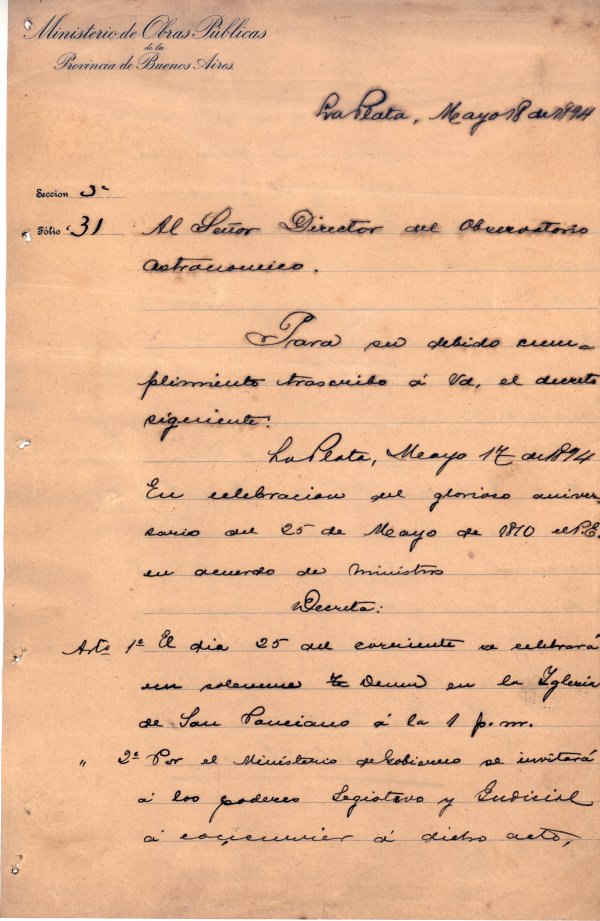 Ministerio de Obras Públicas
de la
Provincia de Buenos Aires.
La Plata, Mayo 18 de 1894
Seccion 3ª
Fólio 31
Al Señor Director del Observatorio
astronomico.
Para su debido cum-
plimiento trascribo á Vd. el decreto
sigeniente:
La Plata, Mayo 17 de 1894
En celebracion del glorioso aniver-
sario del 25 de Mayo de 1810 el P.E.
en acuerdo de Ministros
Decreta:
Arto 1º El dia 25 del corriente se celebrará
un solemne Te Deum en la Iglesia
de San Ponciano á la 1 p.m.
" 2º Por el Ministerio de Gobierno se invitará
á los poderes Legistavo y Judicial
á concurrier á dicho acto,